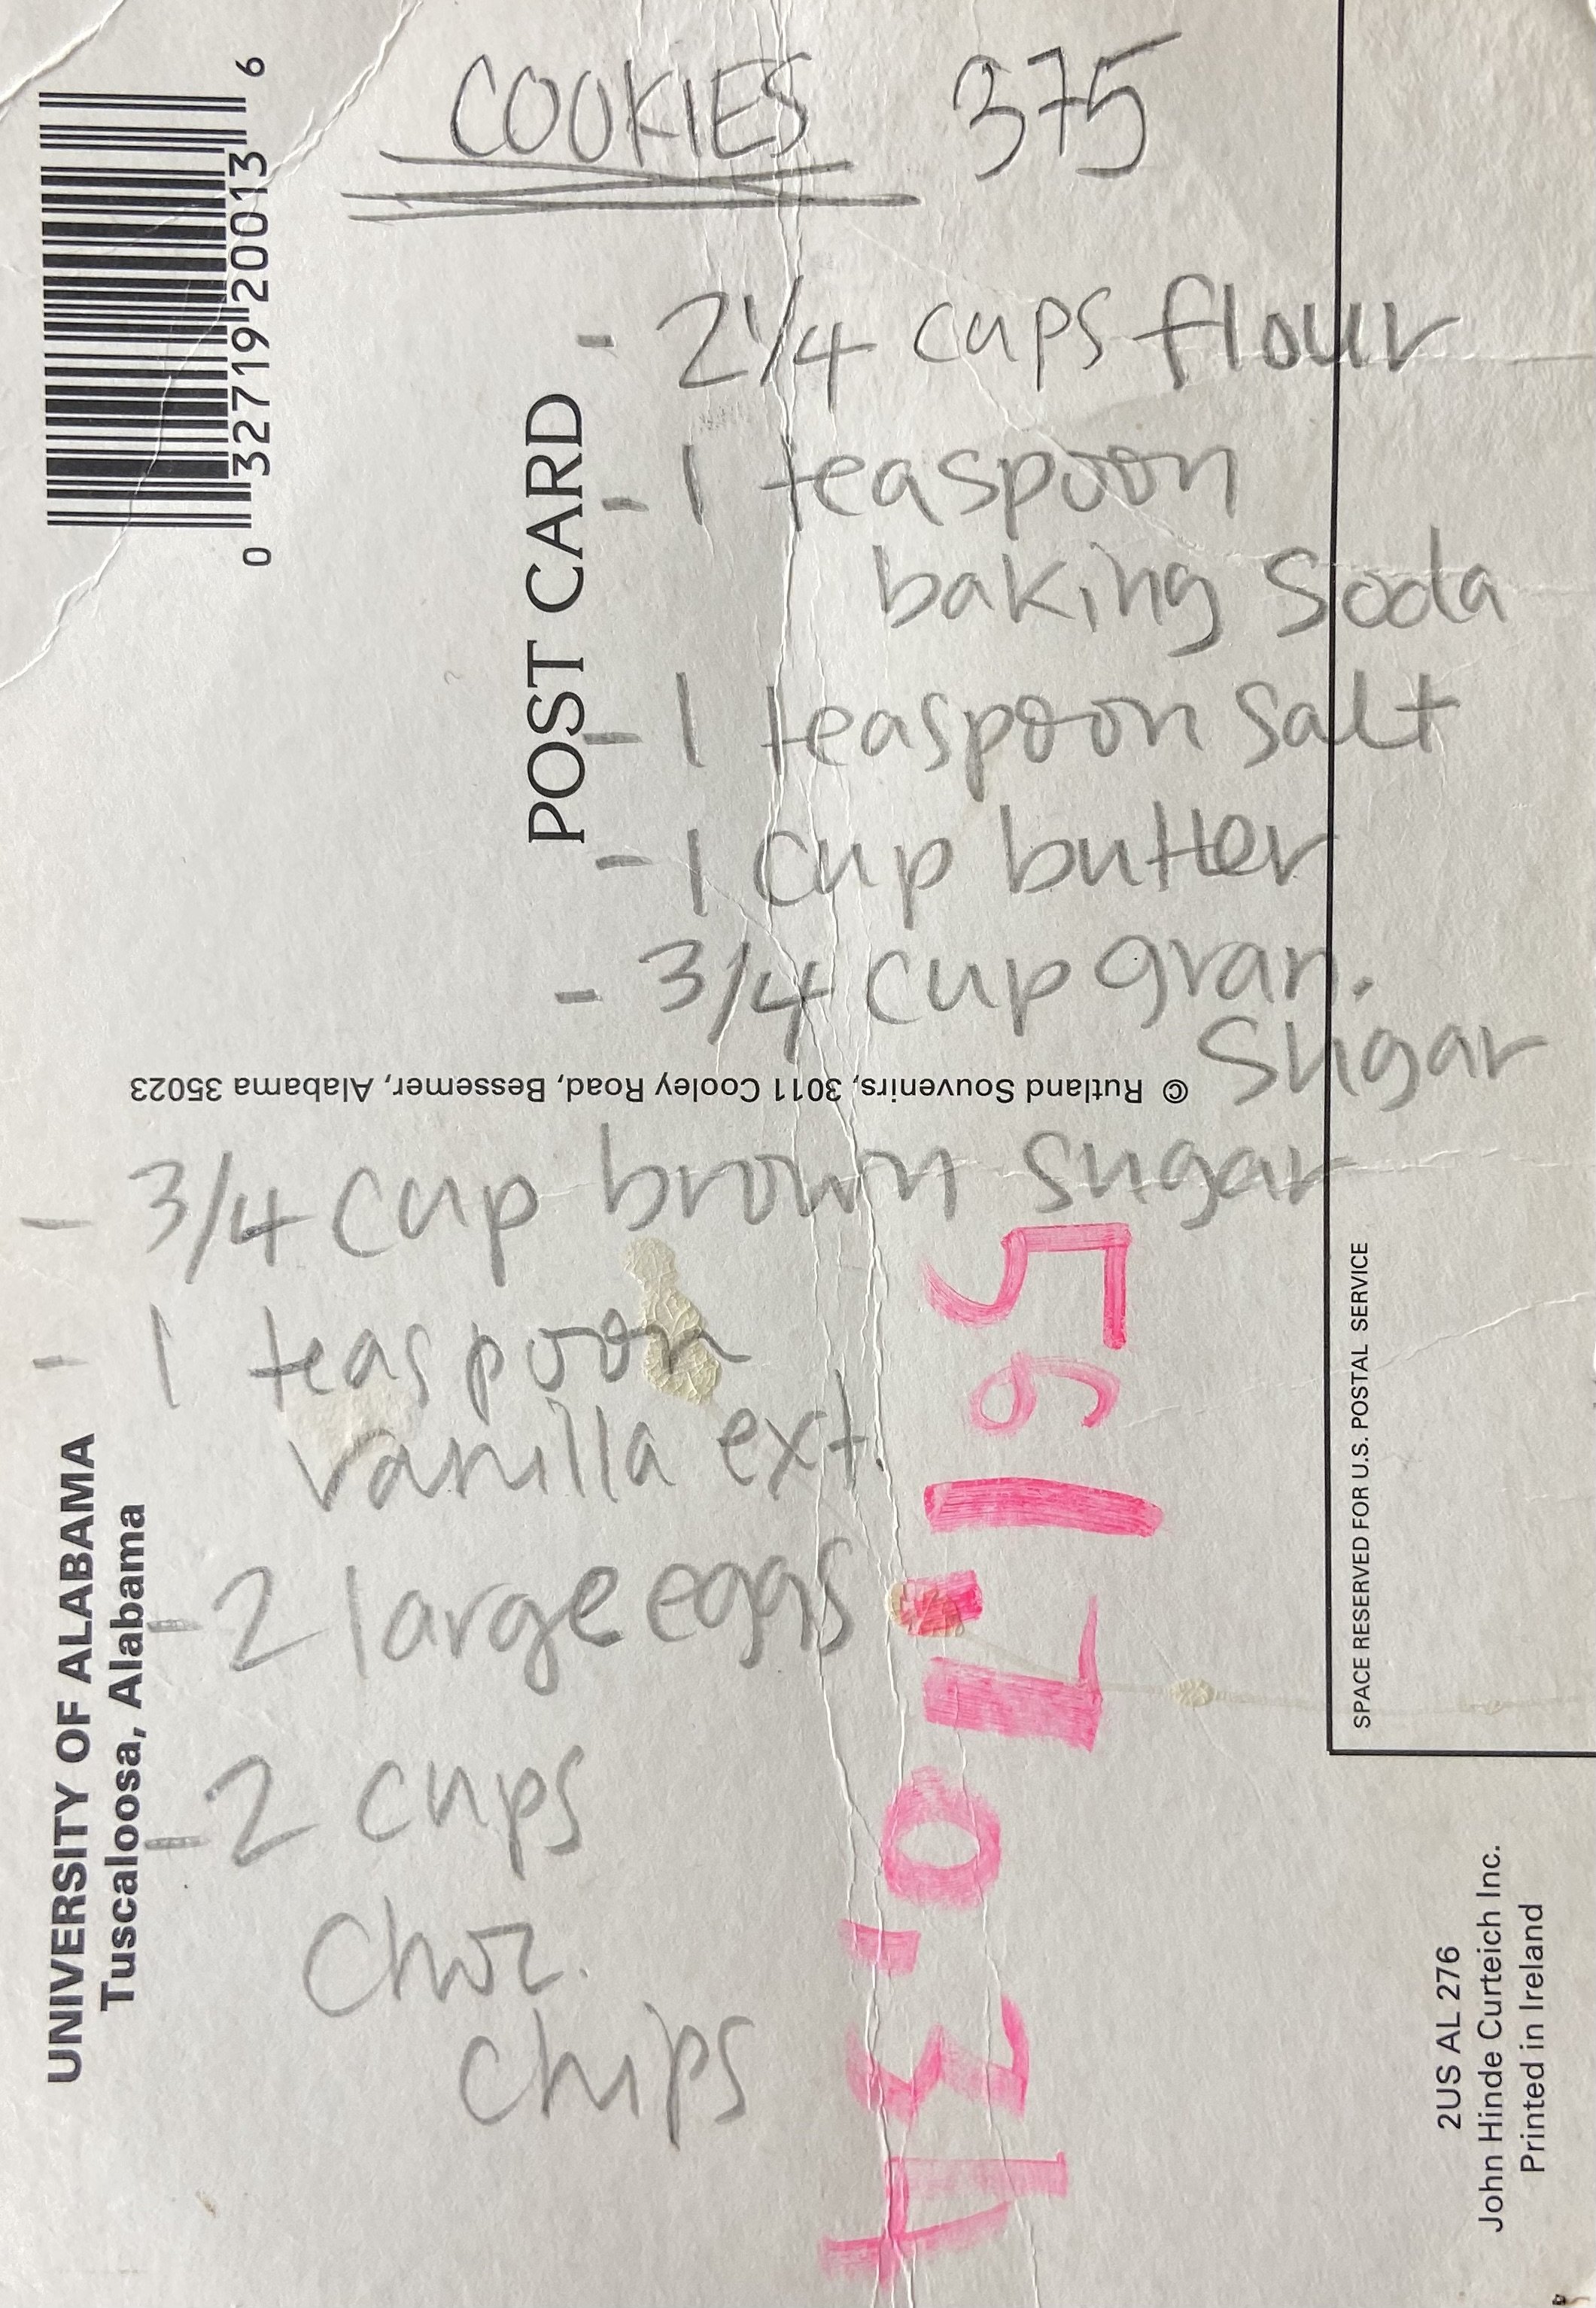 COOKIES 375
- 2 1/4 cups flour
- 1 teaspoon
baking soda
- 1 teaspoon salt
- 1 cup butter
- 3/4 cup gran.
sugar
- 3/4 cup brown sugar
- 1 teaspoon
vanilla ext.
- 2 large eggs
- 2 cups
choc.
chips
0 32719 20013 6
POST CARD
© Rutland Souvenirs, 3011 Cooley Road, Bessemer, Alabama 35023
UNIVERSITY OF ALABAMA
Tuscaloosa, Alabama
561.70.34
SPACE RESERVED FOR U.S. POSTAL SERVICE
2US AL 276
John Hinde Curteich Inc.
Printed in Ireland